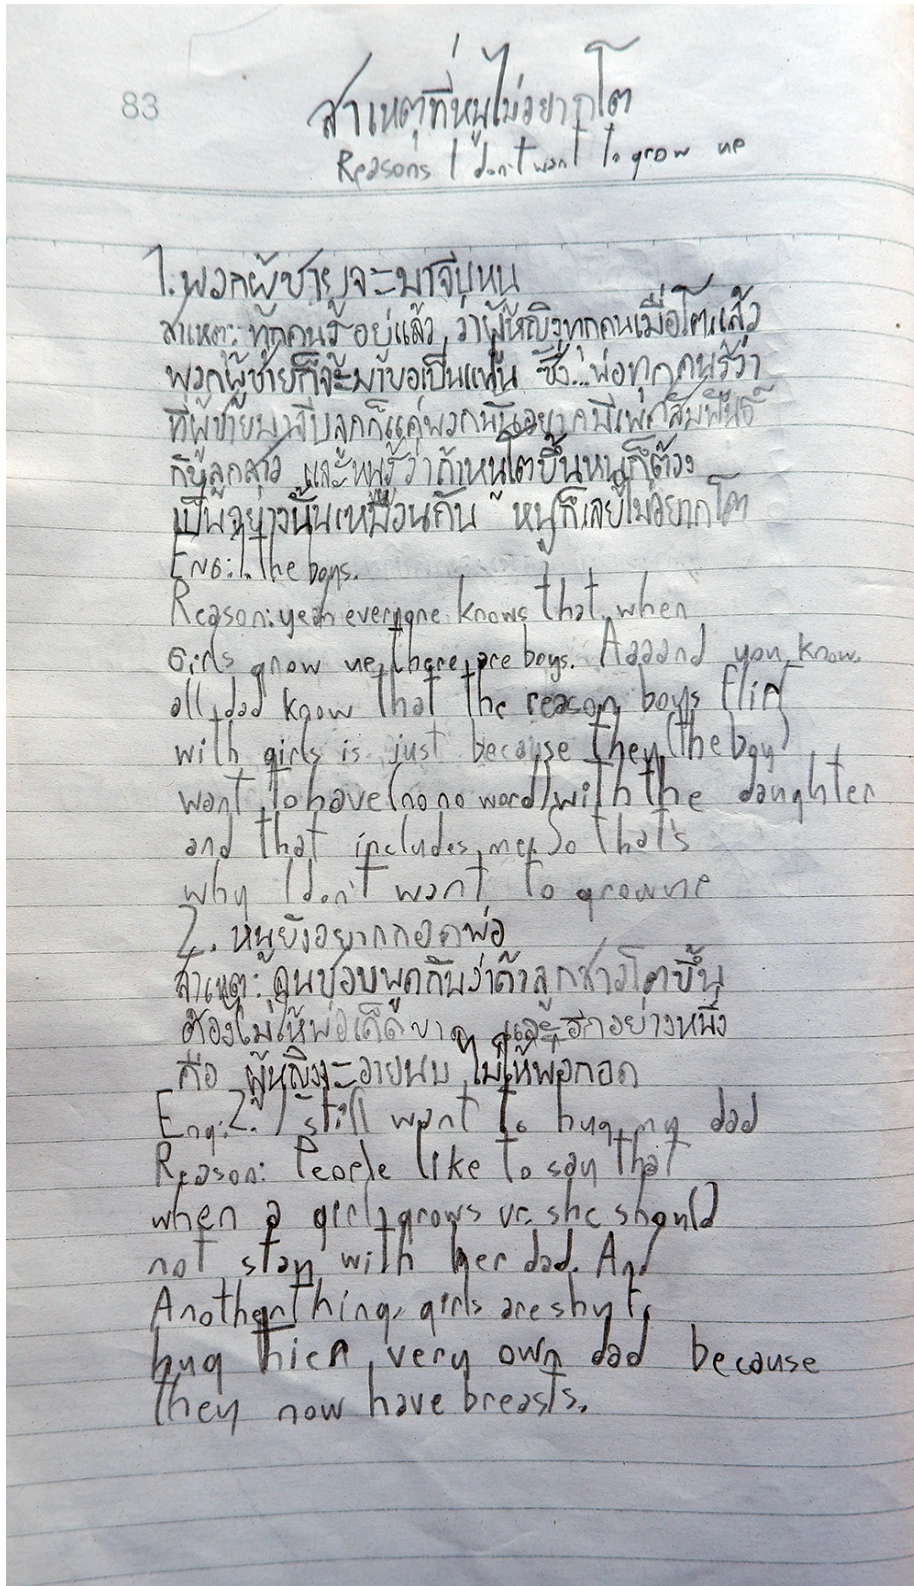 83
สาเหตุที่หนูไม่อยากโต
Reasons I don't want to grow up
1. พวกผู้ชายจะมาจีบหนู
สาเหตุ: ทุกคนรู้อยู่แล้ว ว่าผู้หญิงทุกคนเมื่อโตแล้ว
พวกผู้ชายก็จะมาขอเป็นแฟน ซึ่ง... พ่อทุกคนรู้ว่า
ที่ผู้ชายมาจีบลูกก็แค่พวกนั้นอยากมีเพศสัมพันธ์
กับลูกสาว และหนูรู้ว่าถ้าหนูโตขึ้นหนูก็ต้อง
เป็นอย่างนั้นเหมือนกัน หนูก็เลยไม่อยากโต
Eng: 1. the boys.
Reason: yeah everyone knows that, when
Girls grow up, there are boys. Aaaand you know,
all dad know that the reason boys flirt
with girls is just because they (the boy)
want to have (no no word) with the daughter
and that includes me. So that's
why I don't want to grow up
2. หนูยังอยากกอดพ่อ
สาเหตุ: คนชอบพูดกันว่าถ้าลูกสาวโตขึ้น
ต้องไม่ให้พ่อเด็ดขาด และอีกอย่างหนึ่ง
คือ ผู้หญิงจะอายนม ไม่ให้พ่อกอด
Eng: 2. I still want to hug my dad
Reason: People like to say that
when a girl grows up, she should
not stay with her dad. And
Another thing, girls are shy to
hug thier very own dad because
they now have breasts.